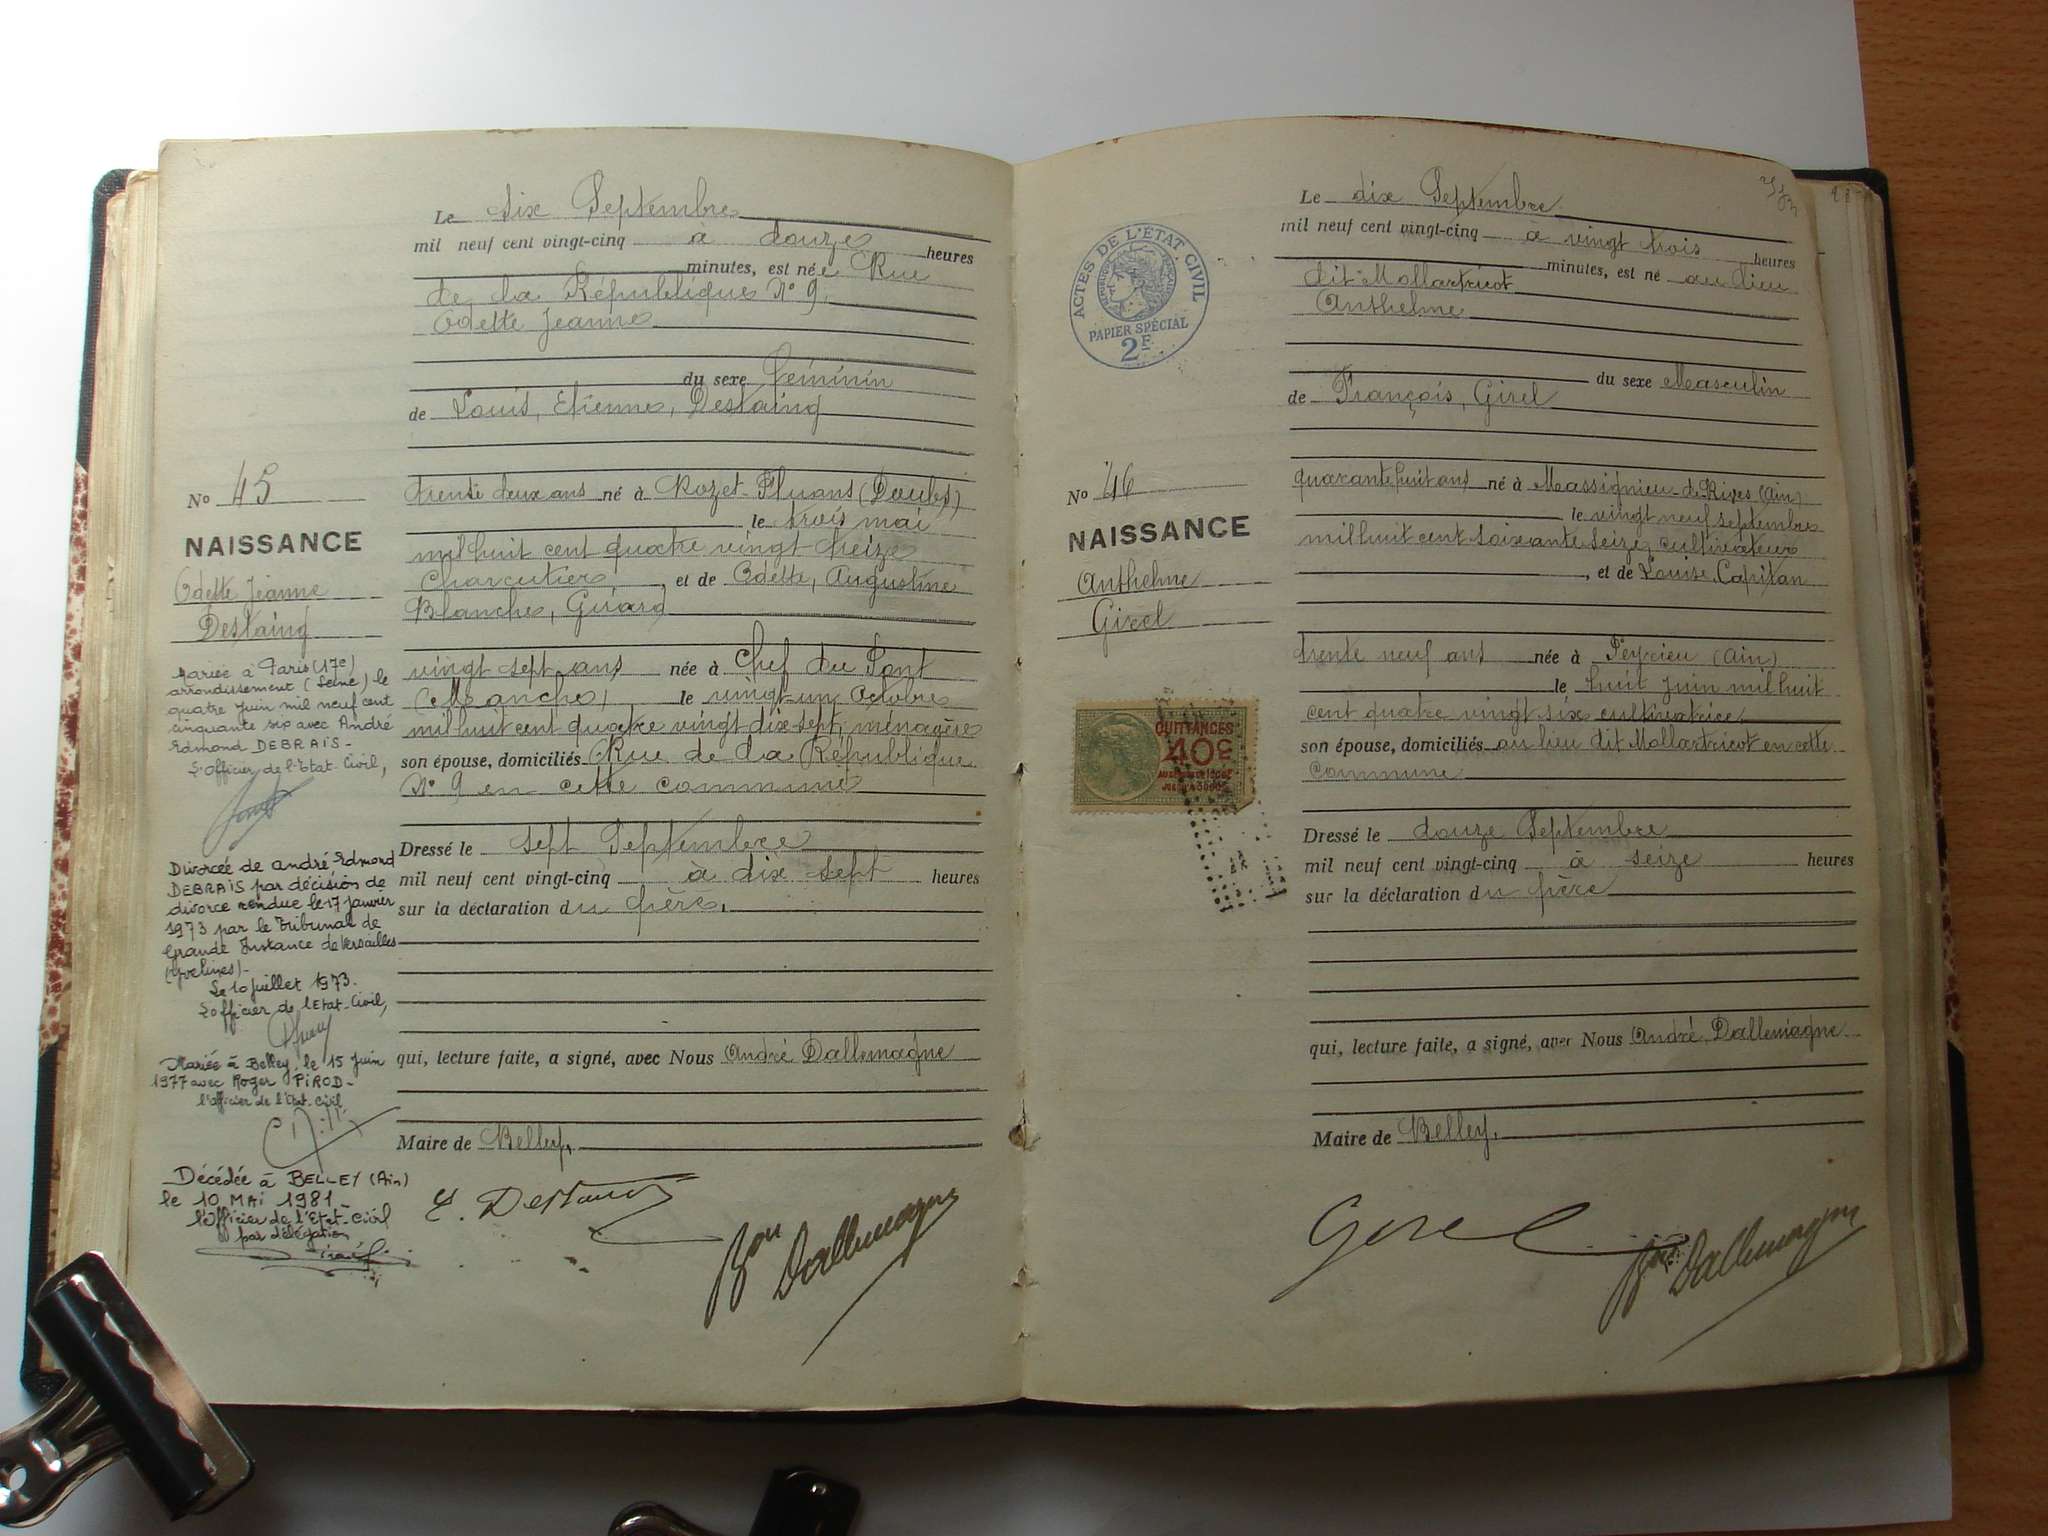 Le six Septembre
mil neuf cent vingt-cinq à douze heures
minutes, est née Rue
de la République N° 9.
Odette Jeanne
du sexe Féminin
de Louis, Etienne, Destaing
N° 45
NAISSANCE
Odette Jeanne
Destaing
trente deux ans né à Rozet-Fluans (Doubs)
le trois mai
mil huit cent quatre vingt treize
Charcutier, et de Odette, Augustine
Blanche, Girard
vingt sept ans née à Chef du Pont
(Manche) le vingt-un Octobre
mil huit cent quatre vingt dix-sept, ménagère
son épouse, domiciliés Rue de la République
N° 9 en cette commune
Dressé le sept Septembre
mil neuf cent vingt-cinq à dix sept heures
sur la déclaration du père.
qui, lecture faite, a signé, avec Nous André Dallemagne
Maire de Belley.
Mariée à Paris (17e)
arrondissement (Seine) le
quatre Juin mil neuf cent
cinquante six avec André
Edmond DEBRAIS-
L'Officier de l'Etat-Civil,
Divorcée de André Edmond
DEBRAIS par décision de
divorce rendue le 17 janvier
1973 par le Tribunal de
Grande Instance de Versailles
(Yvelines)-
Le 10 juillet 1973.
L'officier de l'Etat-Civil,
Mariée à Belley, le 15 Juin
1977 avec Roger PIROD-
l'officier de l'Etat-Civil
Décédée à BELLEY (Ain)
le 10 MAI 1981-
l'Officier de l'Etat-Civil
par délégation
Bon Dallemagne
Le dix Septembre
mil neuf cent vingt-cinq à vingt trois heures
minutes, est né au lieu
dit Mollartricot
Anthelme
du sexe Masculin
de François, Girel
ACTES DE L'ÉTAT CIVIL
PAPIER SPÉCIAL
2F
N° 46
NAISSANCE
Anthelme
Girel
quarante huit ans né à Massignieu-de-Rives (Ain)
le vingt neuf septembre
mil huit cent soixante seize cultivateur
, et de Louise, Capitan
trente neuf ans née à Peyrieu (Ain)
le huit Juin mil huit
cent quatre vingt six cultivatrice
son épouse, domiciliés au lieu dit Mollartricot en cette
commune
QUITTANCES
40c
Dressé le douze Septembre
mil neuf cent vingt-cinq à seize heures
sur la déclaration du père
qui, lecture faite, a signé, avec Nous André Dallemagne
Maire de Belley.
Girel
Bon Dallemagne